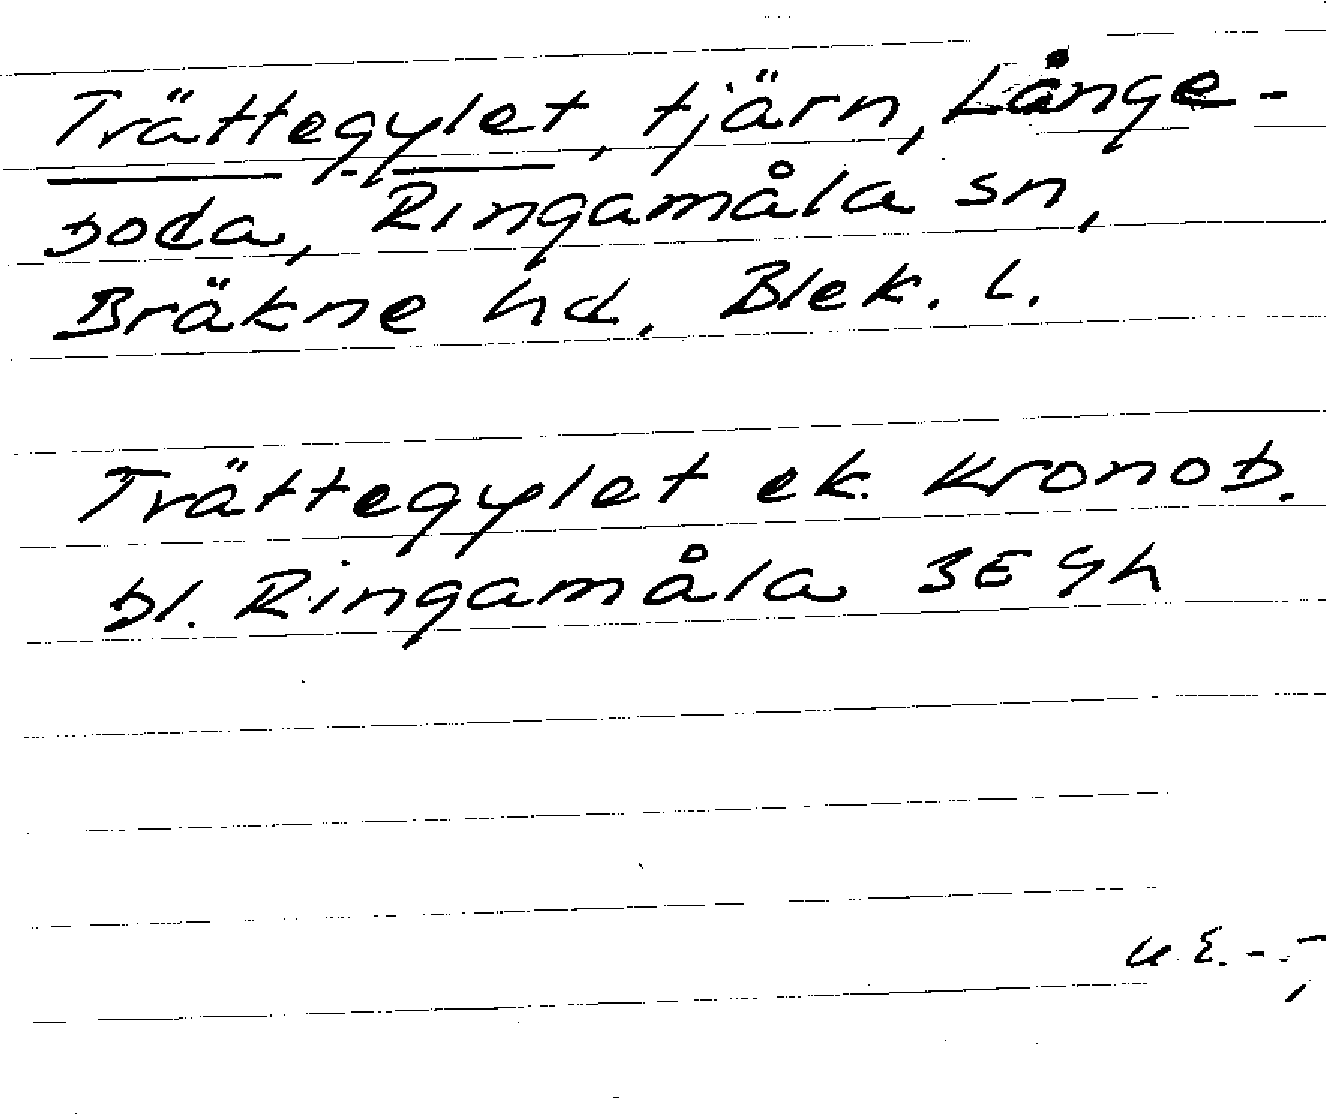 Trättegylet, tjärn, Långe-
boda, Ringamåla sn,
Bräkne hd, Blek. l.
Trättegylet ek. Kronob.
bl. Ringamåla 3E Gh